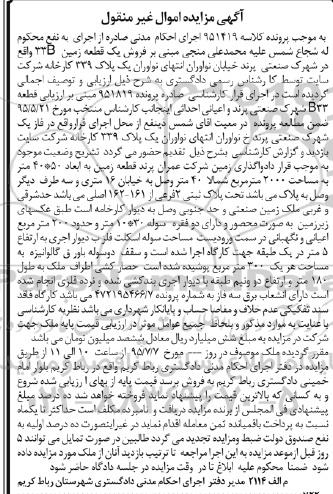 آگهی مزایده اموال غیر منقول
به موجب پرونده کلاسه ۹۵۱۴۱۹ اجرای احکام مدنی صادره از اجرای به نفع محکوم
له شجاع شمس علیه محمدعلی منجی مبنی بر فروش یک قطعه زمین ۳۳B واقع
در شهرک صنعتی پرند خیابان نوآوران انتهای نوآوران یک پلاک ۳۳۹ کارخانه شرکت
سایت توسط کارشناس رسمی دادگستری به شرح ذیل ارزیابی و توصیف اجمالی
گردیده است در اجرای قرار کارشناسی صادره پرونده ۹۵۱۸۱۹ مبنی بر ارزیابی قطعه
B۳۳ شهرک صنعتی پرند و اعیانی احداثی اینجانب کارشناس منتخب مورخ ۹۵/۵/۲۱
ضمن مطالعه پرونده در معیت آقای شمس ذینفع از محل اجرای قرار واقع در فاز یک
شهرک صنعتی پرند خ نوآوران انتهای نوآوران یک پلاک ۳۳۹ کارخانه شرکت سایت
بازدید و گزارش کارشناسی بشرح ذیل تقدیم حضور می گردد تشریح وضعیت موجود
به موجب قرار دادواگذاری زمین شرکت عمران پرند قطعه زمین به ابعاد ۵۰*۴۰ متر
به مساحت ۲۰۰۰ مترمربع شمالا ۴۰ متر وصل به خیابان ۱۶ متری و سه طرف دیگر
وصل به پلاک می باشد تحت پلاک ثبتی ۲فرعی از ۱۶۱-۱۶۲ اصلی می باشد حدشرقی
و غربی ملک زمین صنعتی و حد جنوبی وصل به دیوار کارخامه است طبق عکسهای
زیرزمین به صورت محصور و دارای دو فقره سوله ۳۰*۱۰ متر و حدود ۲۰۰ متر مربع
اعیانی و نگهبانی در سمت ورودیست مساحت سوله اسکلت فلزی با دیوار آجری به ارتفاع
۵ متر در یک طبقه جهت کارگاه اجرا شده است و سقف دوسوله باورق گالوانیزه به
مساحت هر یک ۳۰۰ متر مربع پوشیده شده است حصار کشی اطراف ملک به طول
۱۸۰ متر و ارتفاع دو و نیم طبقه با دیوار آجری بندکشی شده و نرده فلزی انجام شده
است دارای انشعاب برق سه فاز به شماره پرونده ۴۷۲۱۹۵۴۶۶/۷ می باشد کارگاه فاقد
سند تفکیکی عدم خلاف و مفاصا حساب و پایانکار شهرداری می باشد نظریه کارشناسی
با عنایت به موارد مذکور و بلحاظ جمیع عوامل موثر در ارزیابی قیمت پایه ملک جهت
شرکت در مزایده به مبلغ شش میلیارد ریال معادل ششصد میلیون تومان می باشد
مقرر گردیده ملک موصوف در روز --- مورخ ۹۵/۷/۷ از ساعت ۱۰ الی ۱۱ از طریق
مزایده در دفتر اجرای احکام مدنی دادگستری رباط کریم واقع در رباط کریم بلوار امام
خمینی دادگستری رباط کریم به فروش برسد قیمت پایه از بهای ارزیابی شده شروع
و به کسانی که بالاترین قیمت را پیشنهاد نماید فروخته خواهد شد ده درصد مبلغ
پیشنهادی فی المجلس از برنده مزایده دریافت و نامبرده مکلف است حداکثر تا یکماه
نسبت به پرداخت باقیمانده ثمن معامله اقدام نماید در غیراینصورت ده درصد اولیه به
نفع صندوق دولت ضبط ومزایده تجدید می گردد طالبین در صورت تمایل می توانند ۵
روز قبل ازموعد مزایده به این اجرا مراجعه تا ترتیب بازدید آنان از ملک مورد مزایده داده
شود ضمنا محکوم علیه ابلاغ تا در وقت مزایده در جلسه دادگاه حاضر شود
م الف ۲۱۱۴ مدیر دفتر اجرای احکام مدنی دادگستری شهرستان رباط کریم